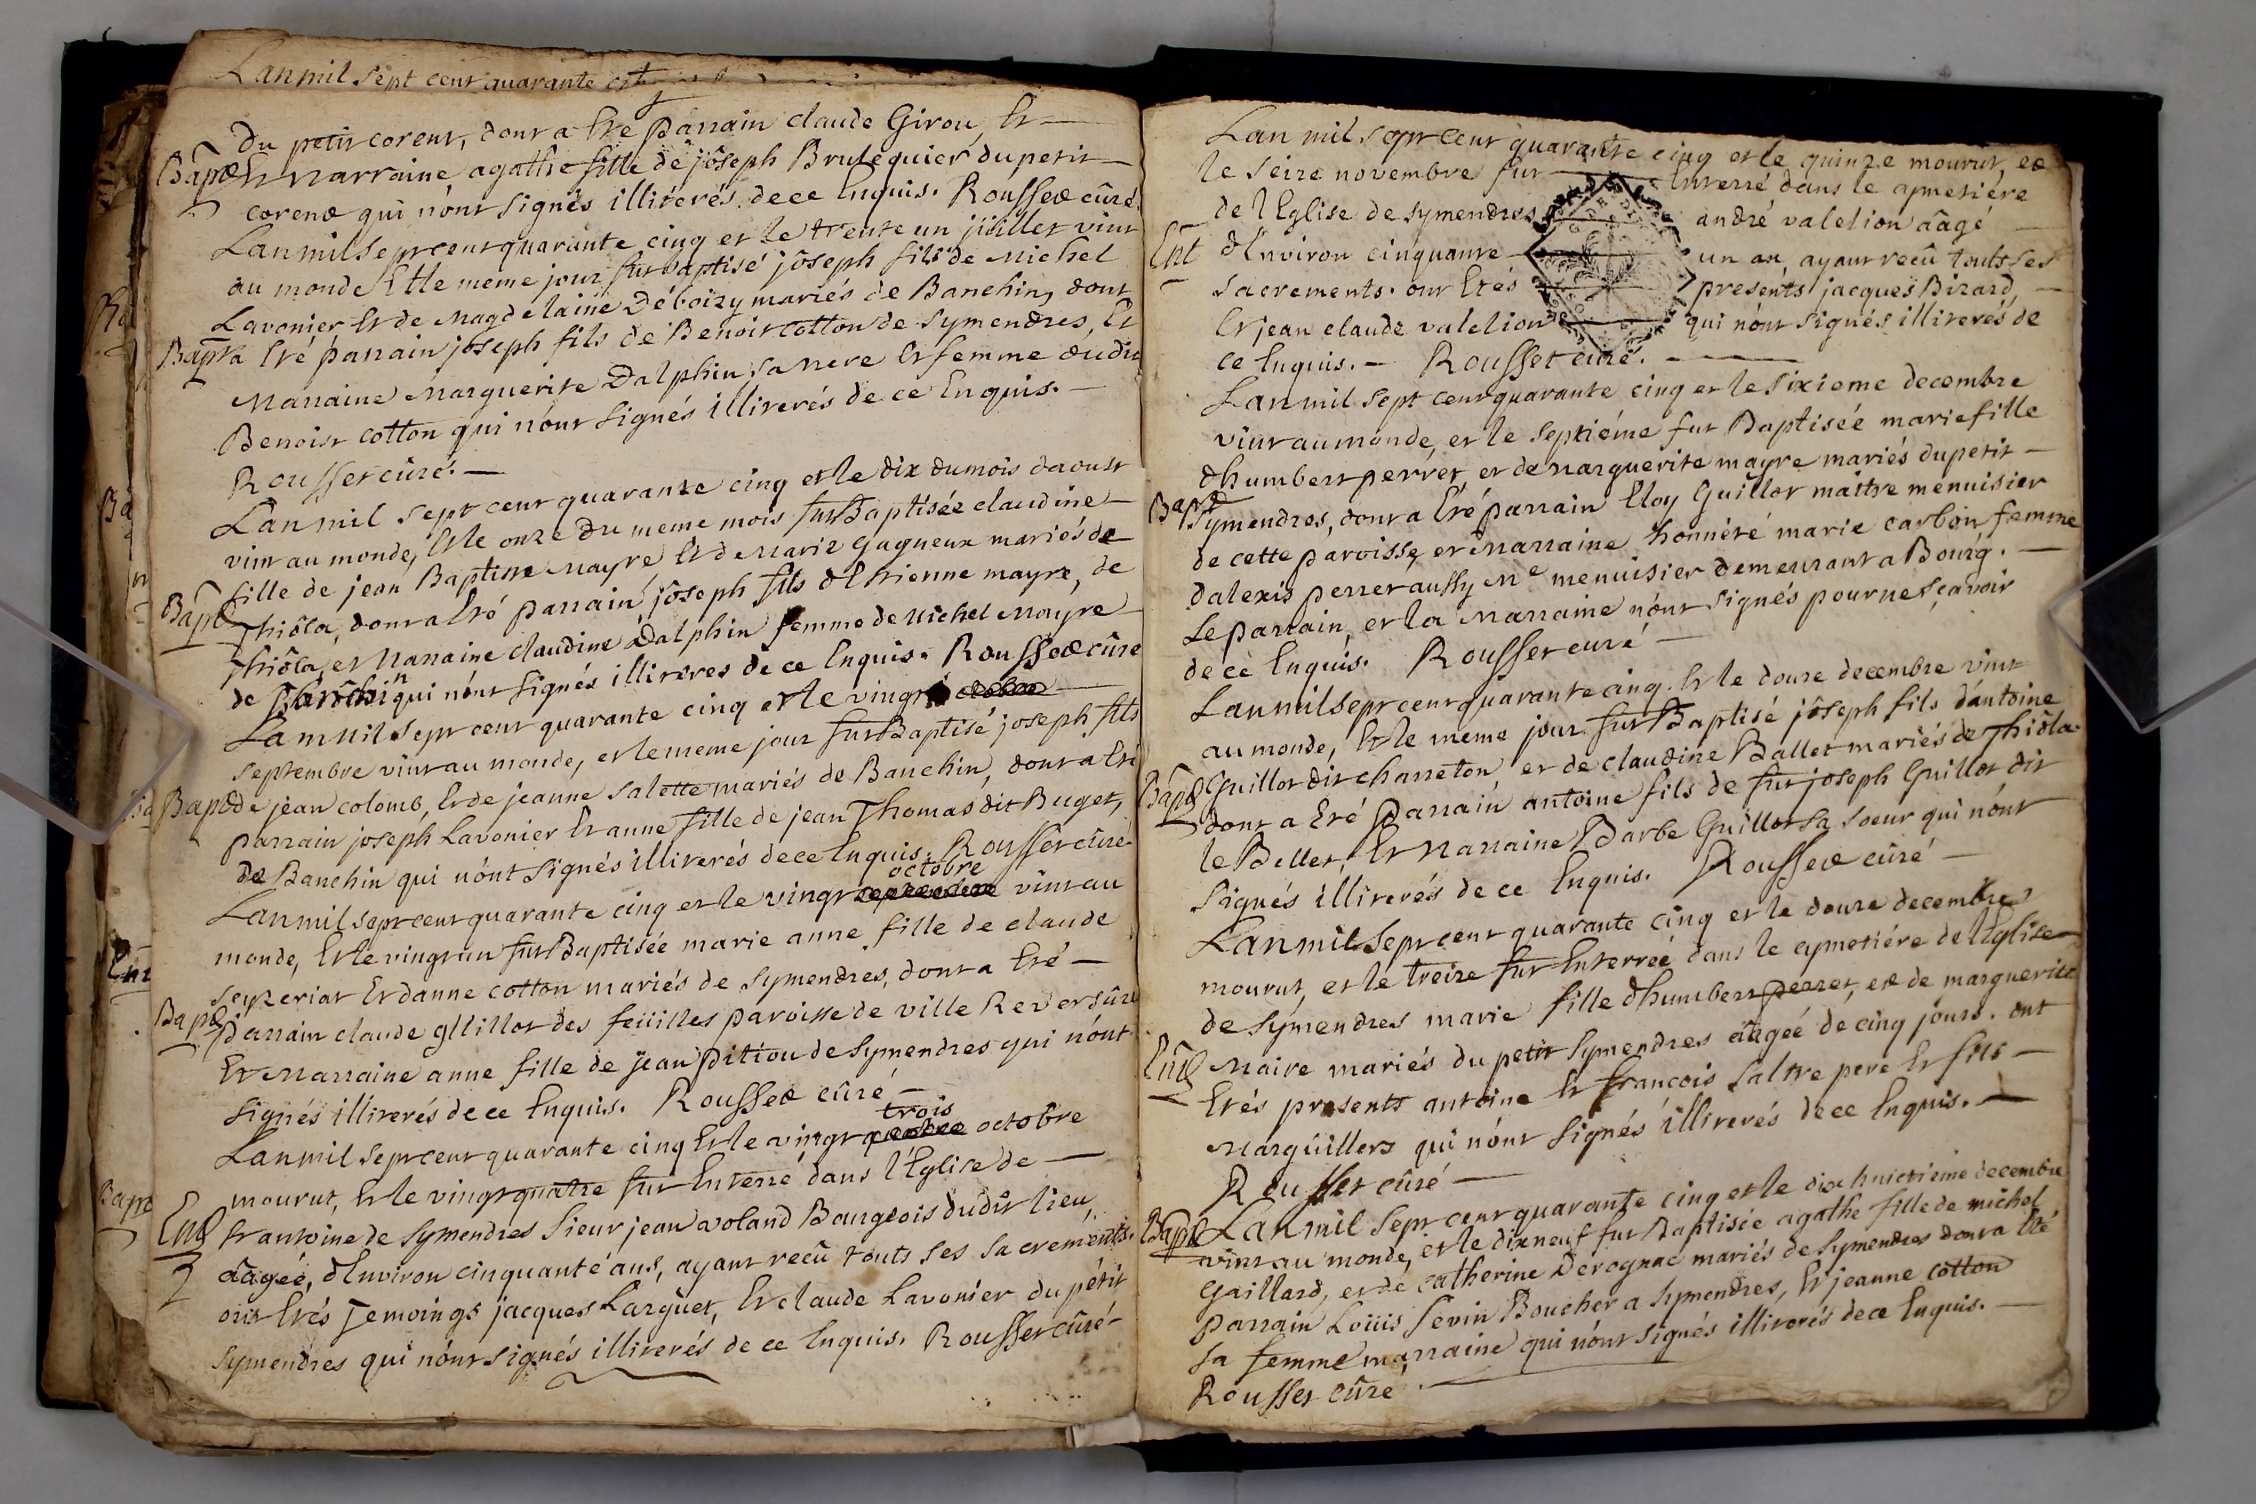 Lan mil sept cent quarante
du petit corent, dont a Eté parrain claude Girou, Et
Bapt Et Marraine agathe fille de jôseph Brulequier du petit
corent qui nónt signés illiterés de ce Enquis. Rousset cûré.
Lan mil sept cent quarante cinq et le trente un jüillet vint
au monde Et le meme jour fut baptisé jôseph fils de Michel
Lavonier Et de Magdelaine Déboizy mariés de Banchin, dont
Bapt a Eté parrain joseph fils de Benoit cotton de Symendres, Et
Marraine Marguerite Dalphin, sa Mere Et femme dudit
Benoist cotton qui nónt signés illiterés de ce Enquis.
Rousset cûré.
Lan mil sept cent quarante cinq et le dix du mois daoust
vint au monde, Et le onze du meme mois fut Baptisée claudine
fille de jean Baptiste Mayre Et de Marie Gagneux mariés de
Bapt Thiôla, dont a Eté parrain jôseph fils dEtienne mayre, de
Thiôla, et Marraine claudine Dalphin femme de Michel Mayre
de qui nónt signés illiteres de ce Enquis. Rousset cûre
Lan mil sept cent quarante cinq et le vingt
septembre vint au monde, et le meme jour fut Baptisé joseph fils
Bapt de jean colomb, Et de jeanne Salette mariés de Banchin, dont a Eté
parrain joseph Lavonier Et anne fille de jean Thomas dit Buget,
de Banchin qui nónt signés illiterés de ce Enquis. Rousset cûré
octobre
Lan mil sept cent quarante cinq et le vingt septembre vint au
monde, Et le vingt un fut Baptisée marie anne fille de claude
Seyzeriat Et danne cotton mariés de Symendres, dont a Eté
Bapt parrain claude gllillot des feüilles paroisse de ville Reversûre
Et Marraine anne fille de jean pitiou de Symendres qui nónt
signés illiterés de ce Enquis. Rousset cûré
trois
Lan mil sept cent quarante cinq Et le vingt quatre octobre
mourut, Et le vingt quatre fut Enterré dans lEglise de
Ent St antoine de Symendres Sieur jean voland Bourgeois dudit lieu,
âageé, dEnviron cinquanté ans, ayant recû touts ses sacrements.
ont Etés Temoings jacques Larguet, Et claude Lavonier du pétit
symendres qui nónt signés illiterés de ce Enquis. Rousset cûré
Lan mil sept cent quarante cinq et le quinze mourut, et
le seize novembre fut Enterré dans le cymetiére
de lEglise de symendres andré valelion aâgé
Ent dEnviron cinquante un an ayant recû touts ses
sacrements. ont Etés presénts jacques Bizard,
Et jean claude valelion qui nónt signés illiterés de
ce Enquis. Rousset curé.
Lan mil sept cent quarante cinq et le sixieme decembre
vint au monde, et le septiéme fut Baptisée marie fille
dhumbert perret, et de Marguerite mayre mariés du petit
Bapt Symendres, dont a Eté parrain Eloy Guillot maitre menuisier
de cette paroisse, et Marraine honnéte marie carbon femme
dalexis perret aussy Me menuisier demeurant a Bourg.
Le parrain, et la Marraine nónt signés pour ne sçavoir
de ce Enquis. Rousset curé
Lan mil sept cent quarante cinq. Et le douze decembre vint
au monde, Et le meme jour fut Baptisé jôseph fils dántoine
Bapt Guillot dit charreton, et de claudine Ballet mariés de Thiôla
dont a Eté parrain antoine fils de fut joseph Guillot dit
le Bellet, Et Marraine Barbe Guillot sa soeur qui nónt
signés illiterés de ce Enquis. Rousset cûré
Lan mil sept cent quarante cinq et le douze decembre
mourut, et le treize fut Enterreé dans le cymetiére de lEglise
de Symendres marie fille dhumbert perret, et de marguerite
Ent Maire mariés du petit Symendres aâgeé de cinq jours. ont
Etés presents antoine Et francois saltre pere Et fils
Marguilliers qui nónt signés illiterés de ce Enquis.
Rousset cûré
Bapt Lan mil sept cent quarante cinq et le dix huictieme decembre
vint au monde, et le dix neuf fut Baptisée agathe fille de michel
Gaillard, et de catherine Derognac mariés de symendres dont a Eté
parrain Loüis Sevin Boucher a symendres, Et jeanne cotton
sa femme marraine qui nónt signés illiterés de ce Enquis.
Rousset cûré